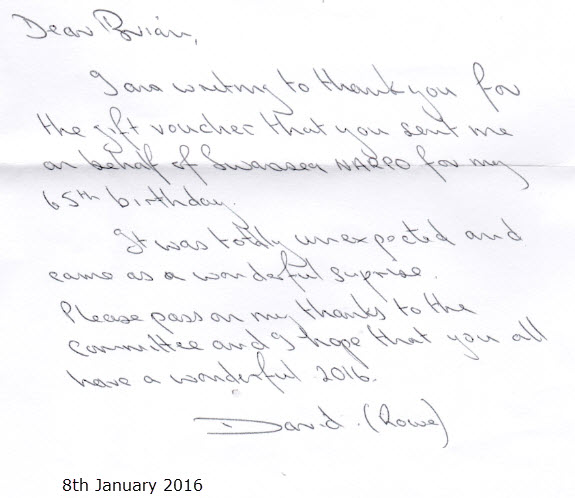 Dear Brian,
I am writing to thank you for
the gift voucher that you sent me
on behalf of Swansea NARPO for my
65th birthday.
It was totally unexpected and
came as a wonderful suprise.
Please pass on my thanks to the
committee and I hope that you all
have a wonderful 2016.
David. (Rowe)
8th January 2016